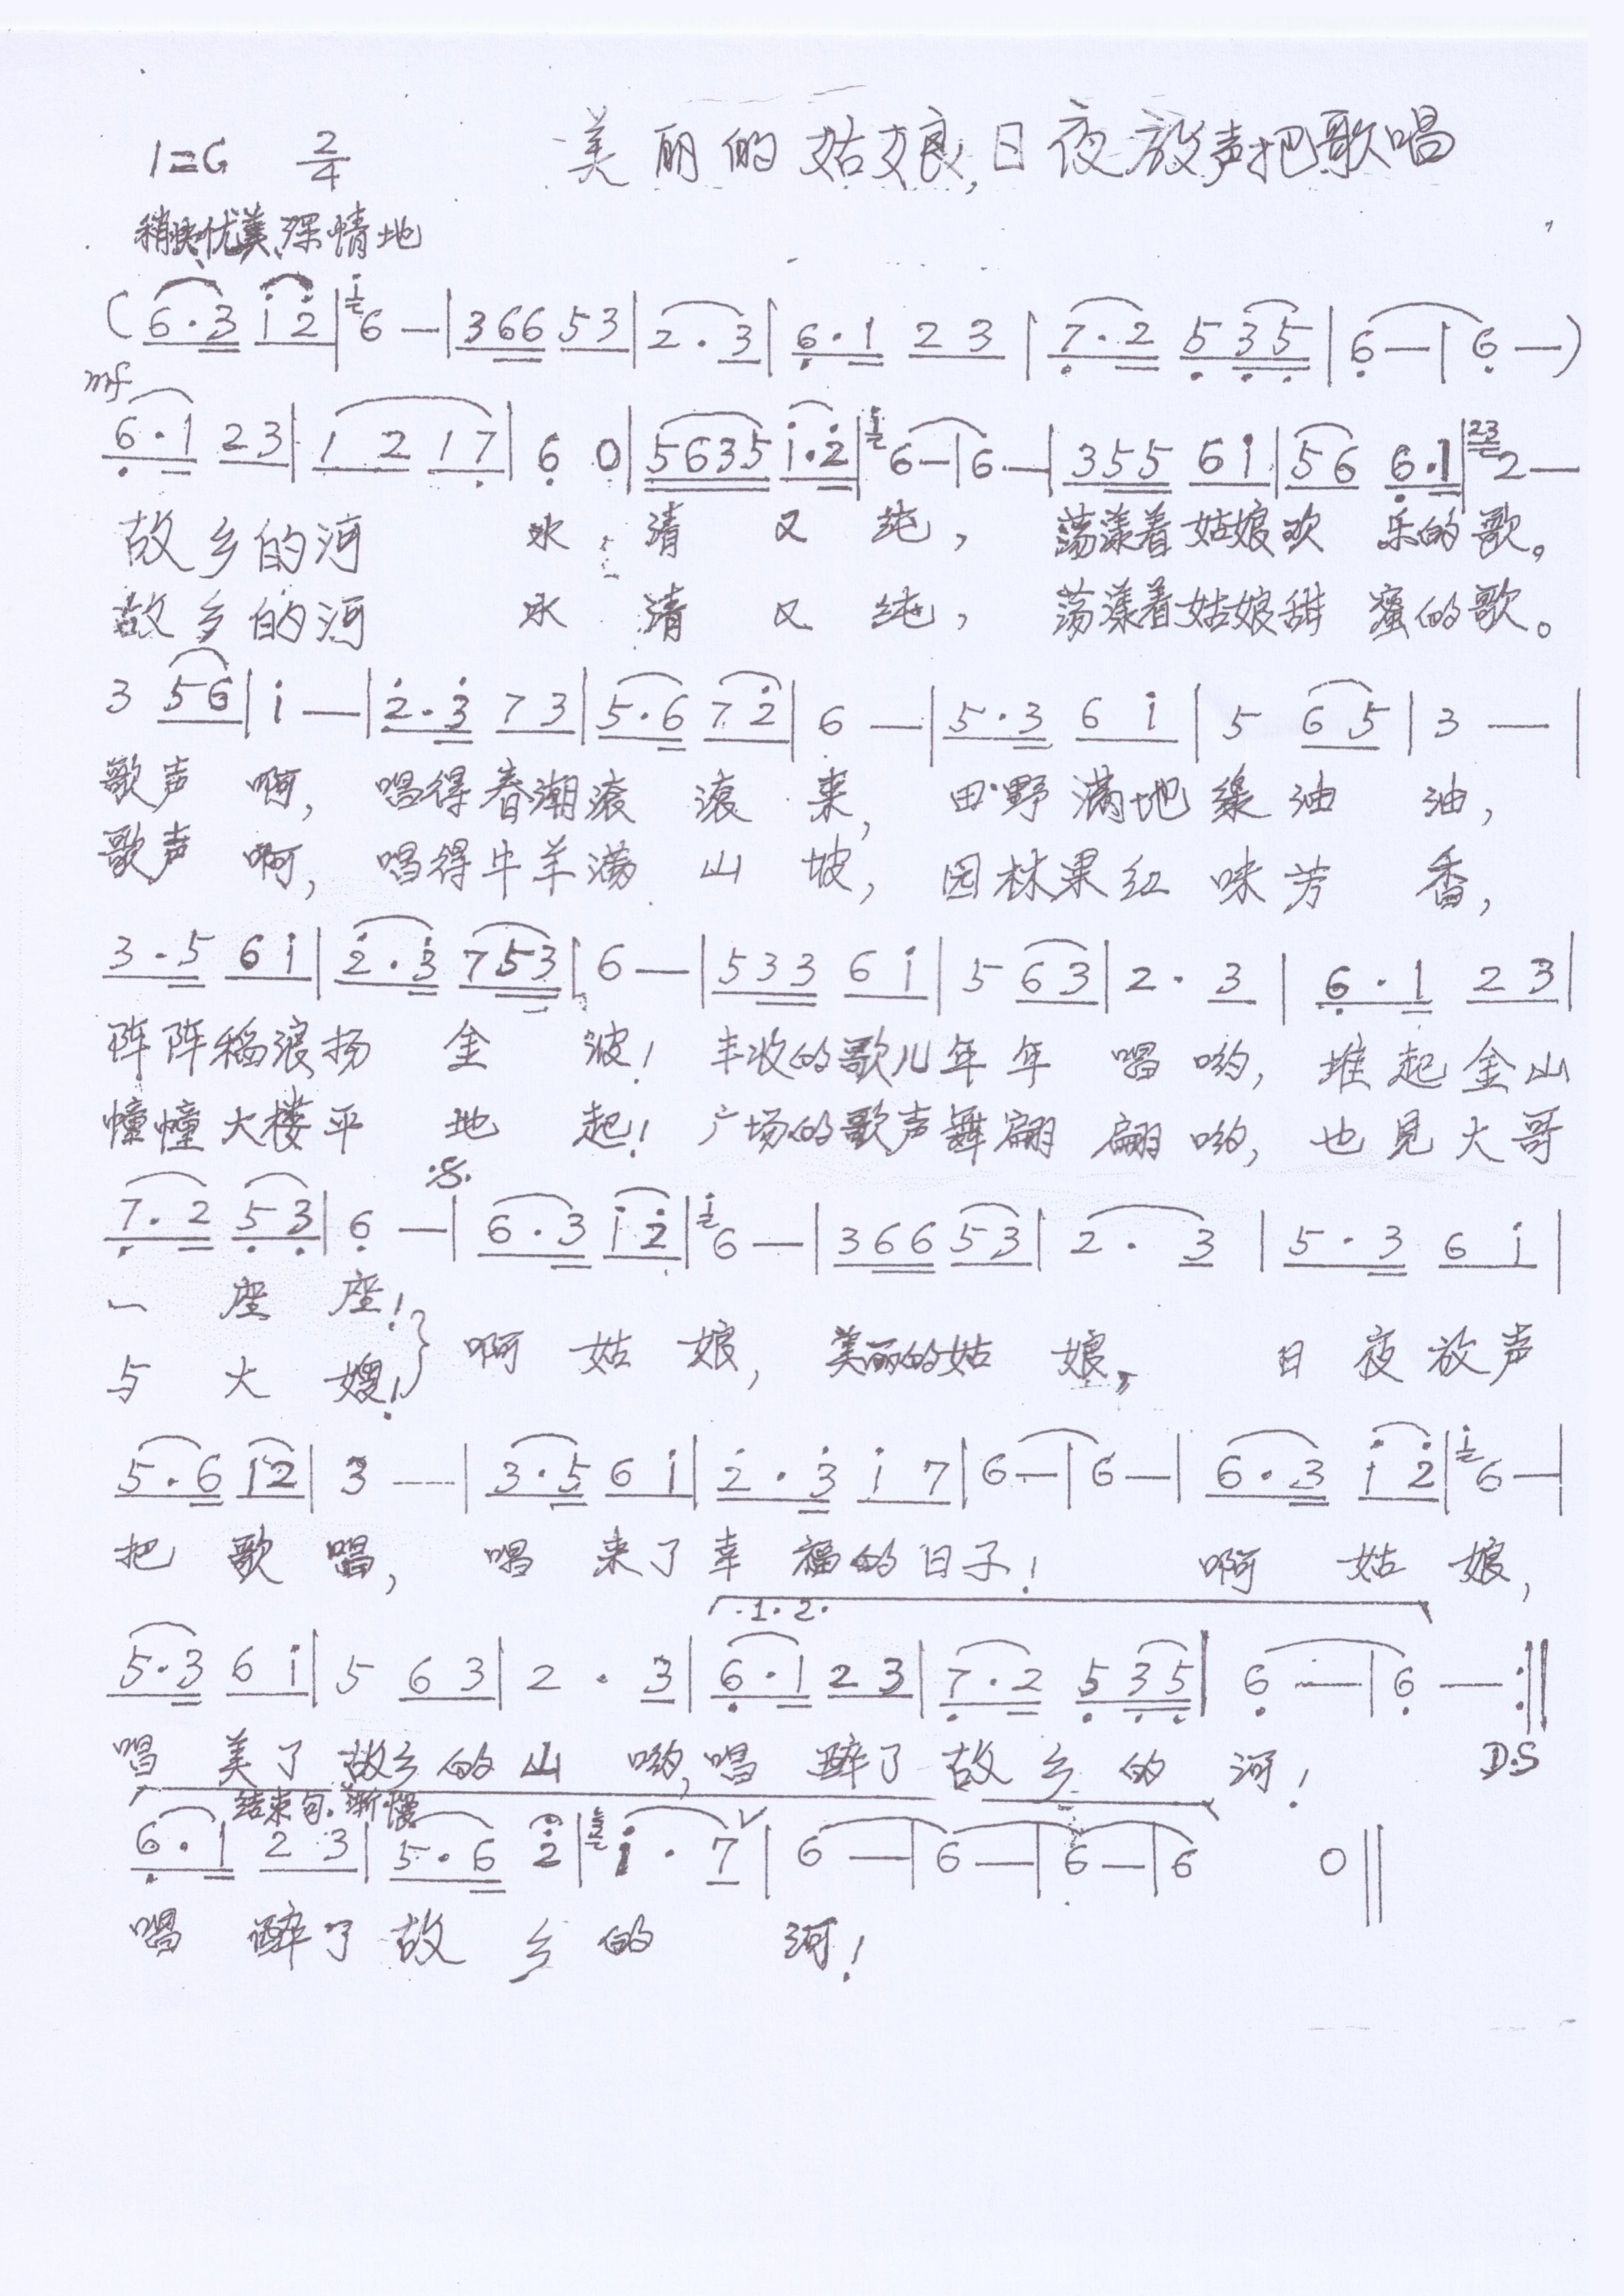 1=G 2/4 美丽的姑娘,日夜放声把歌唱
稍快优美、深情地
(6·3 i̇2̇|i̇6 —|366 53|2·3|6̣·1 23|7̣·2 5̣3̣5̣|6̣—|6̣—)
mf
6̣·1 23|1 2 17̣|6̣ 0|5635 i̇·2̇|i̇6—|6—|355 6i̇|56 6̣·1|23 2—
故乡的河 水清又纯, 荡漾着姑娘欢 乐的歌。
故乡的河 水清又纯, 荡漾着姑娘甜 蜜的歌。
3 56|i̇ —|2̇·3̇ 73|5·6 72̇|6 —|5·3 6 i̇|5 65|3 —|
歌声 啊, 唱得春潮滚 滚 来, 田野满地绿油 油,
歌声 啊, 唱得牛羊满 山 坡, 园林果红味芳 香,
3·5 6i̇|2̇·3̇ 753|6—|533 6i̇|5 63|2·3|6̣·1 23|
阵阵稻浪扬 金 波! 丰收的歌儿年年 唱哟, 堆起金山
幢幢大楼平 地 起! 广场的歌声舞翩 翩哟, 也见大哥
7̣·2 5̣3̣|6̣ —|6·3 i̇2̇|i̇6—|366 53|2·3|5·3 6 i̇|
一 座 座!
与 大 嫂!
啊 姑 娘, 美丽的姑 娘, 日 夜放声
5·6 i̇2̇|3 —|3·5 6i̇|2̇·3̇ i̇7|6—|6—|6·3 i̇2̇|i̇6—|
把 歌 唱, 唱 来了幸 福的日子! 啊 姑 娘,
1. 2.
5·3 6i̇|5 63|2·3|6̣·1 23|7̣·2 5̣3̣5̣|6̣ —|6̣ —:‖
唱 美了故乡的山 哟,唱 醉了故乡的 河! D.S
结束句.渐慢
6̣·1 23|5·6 2̇|i̇·7|6—|6—|6—|6 0‖
唱 醉了故 乡的 河!